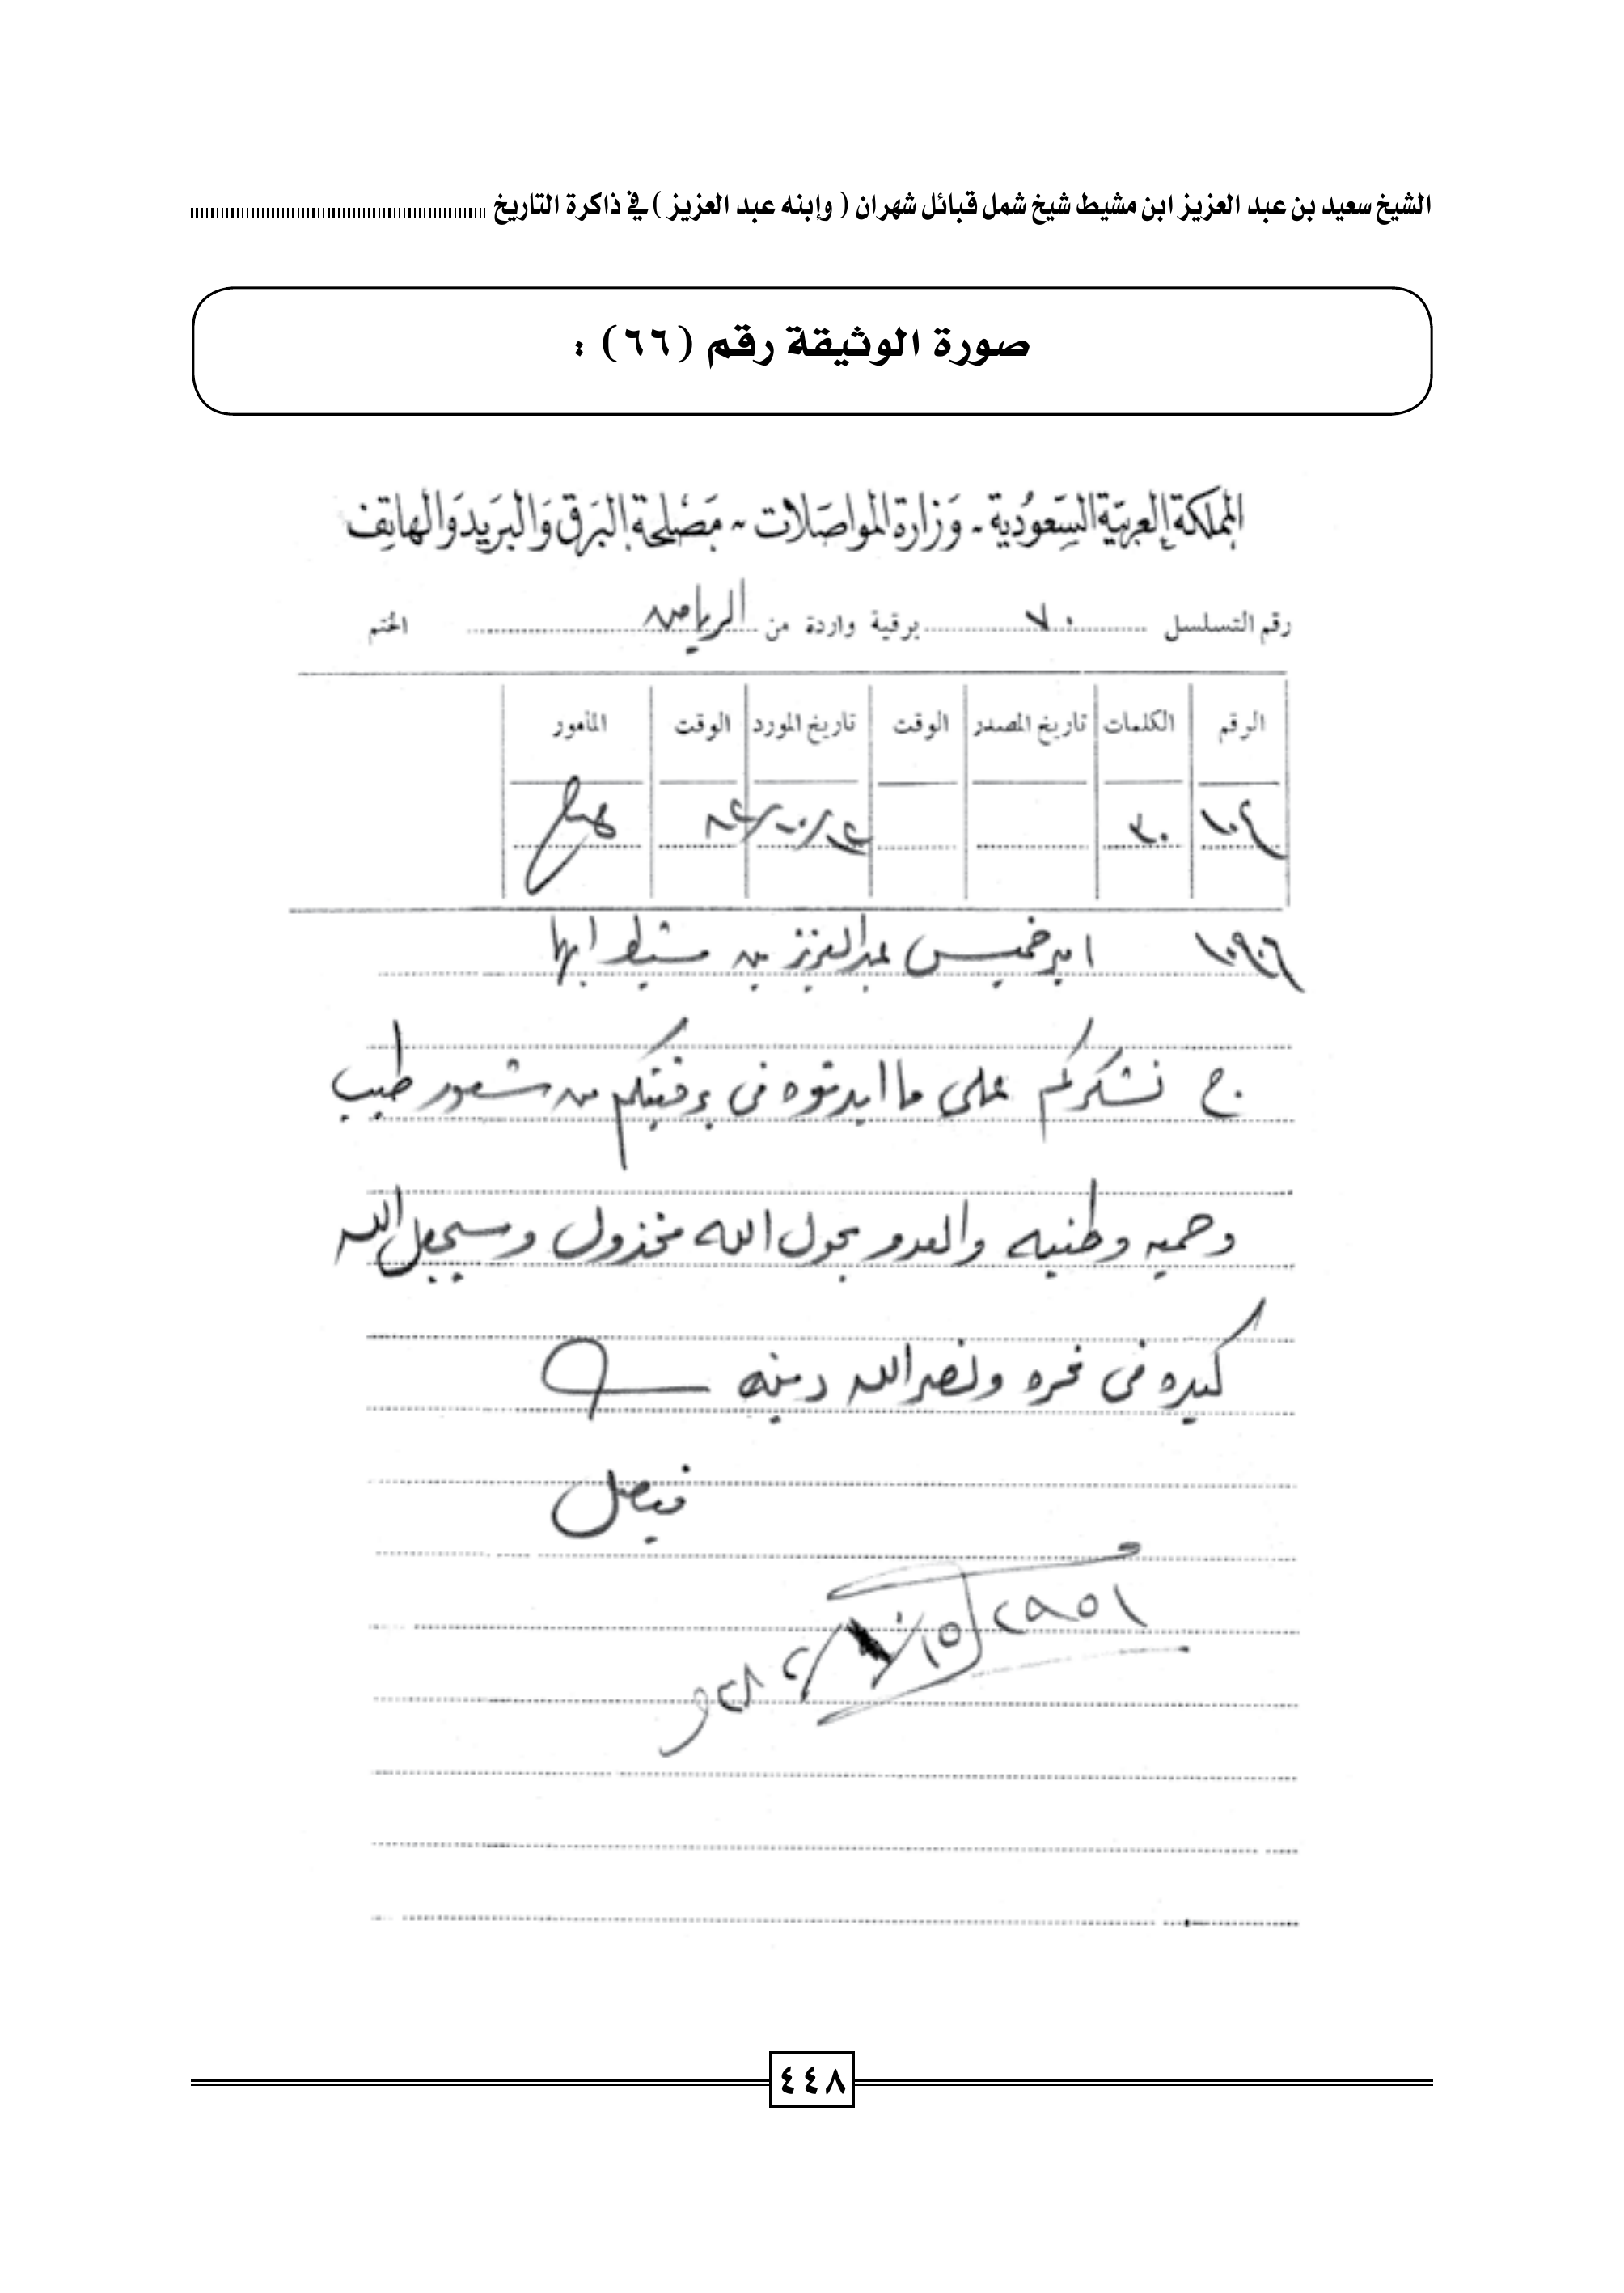 الشيخ سعيد بن عبد العزيز ابن مشيط شيخ شمل قبائل شهران ( وإبنه عبد العزيز ) في ذاكرة التاريخ
صورة الوثيقة رقم (٦٦) :
المملكة العربية السعودية - وزارة المواصلات - مصلحة البرق والبريد والهاتف
رقم التسلسل ٧٠ برقية واردة من الرياض الختم
الرقم الكلمات تاريخ المصدر الوقت تاريخ المورد الوقت المأمور
٣٠
امير خميس عبدالعزيز بن مشيط ابها
ج نشكركم على ما ابديتوه في برقيتكم من شعور طيب
وحميه وطنيه والعدو بحول الله مخذول وسيجعل الله
كيده في نحره ونصر الله دينه
فيصل
٤٤٨